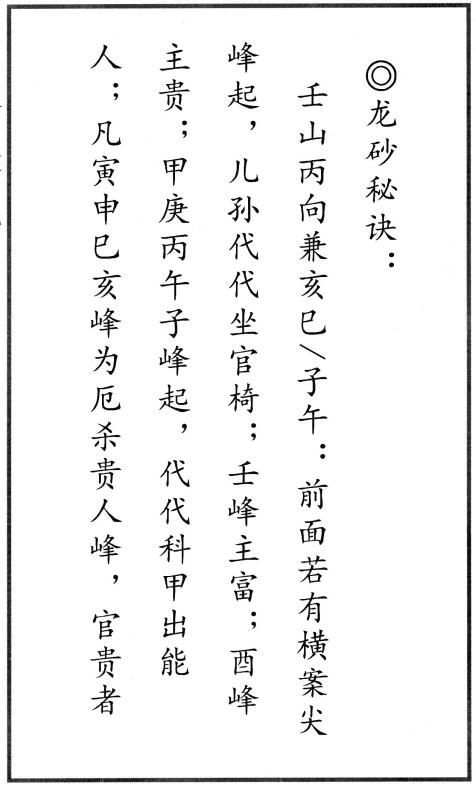 ◎龙砂秘诀：
壬山丙向兼亥巳/子午：前面若有横案尖
峰起，儿孙代代坐官椅；壬峰主富；酉峰
主贵；甲庚丙午子峰起，代代科甲出能
人；凡寅申巳亥峰为厄杀贵人峰，官贵者